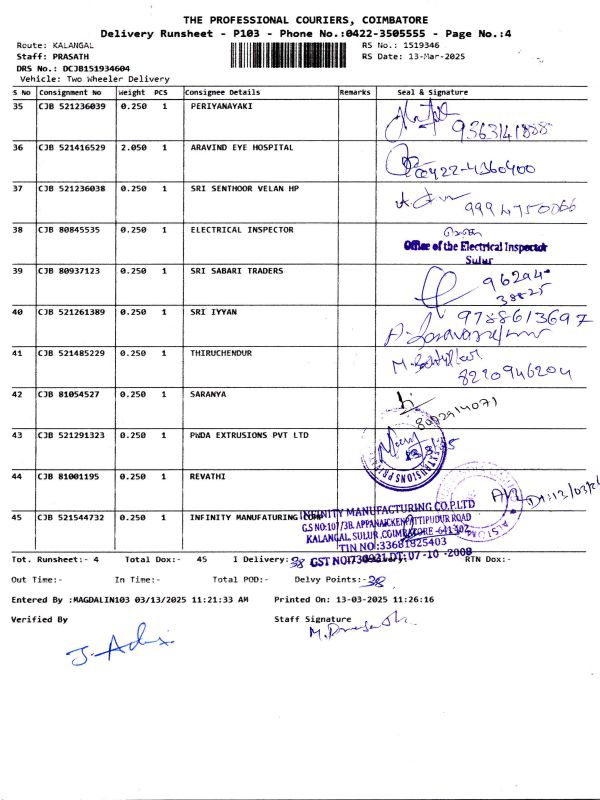 THE PROFESSIONAL COURIERS, COIMBATORE
Delivery Runsheet - P103 - Phone No.:0422-3505555 - Page No.:4
Route: KALANGAL RS No.: 1519346
Staff: PRASATH RS Date: 13-Mar-2025
DRS No.: DCJB151934604
Vehicle: Two Wheeler Delivery
S No Consignment No Weight PCS Consignee Details Remarks Seal & Signature
35 CJB 521236039 0.250 1 PERIYANAYAKI
9363141888
36 CJB 521416529 2.050 1 ARAVIND EYE HOSPITAL
0422-4360400
37 CJB 521236038 0.250 1 SRI SENTHOOR VELAN HP
9994750066
38 CJB 80845535 0.250 1 ELECTRICAL INSPECTOR
Office of the Electrical Inspector
Sulur
39 CJB 80937123 0.250 1 SRI SABARI TRADERS
96294-
38825
40 CJB 521261389 0.250 1 SRI IYYAN
9788613697
41 CJB 521485229 0.250 1 THIRUCHENDUR
8220946204
42 CJB 81054527 0.250 1 SARANYA
43 CJB 521291323 0.250 1 PWDA EXTRUSIONS PVT LTD
44 CJB 81001195 0.250 1 REVATHI
45 CJB 521544732 0.250 1 INFINITY MANUFATURING
INFINITY MANUFACTURING CO.P.LTD
G.S NO:107/3B, APPANAICKENPATTIPUDUR ROAD
KALANGAL, SULUR, COIMBATORE -641302
TIN NO:33681825403
Tot. Runsheet:- 4 Total Dox:- 45 I Delivery:- 38 RTN Dox:-
Out Time:- In Time:- Total POD:- Delvy Points:- 38
Entered By :MAGDALIN103 03/13/2025 11:21:33 AM Printed On: 13-03-2025 11:26:16
Verified By Staff Signature